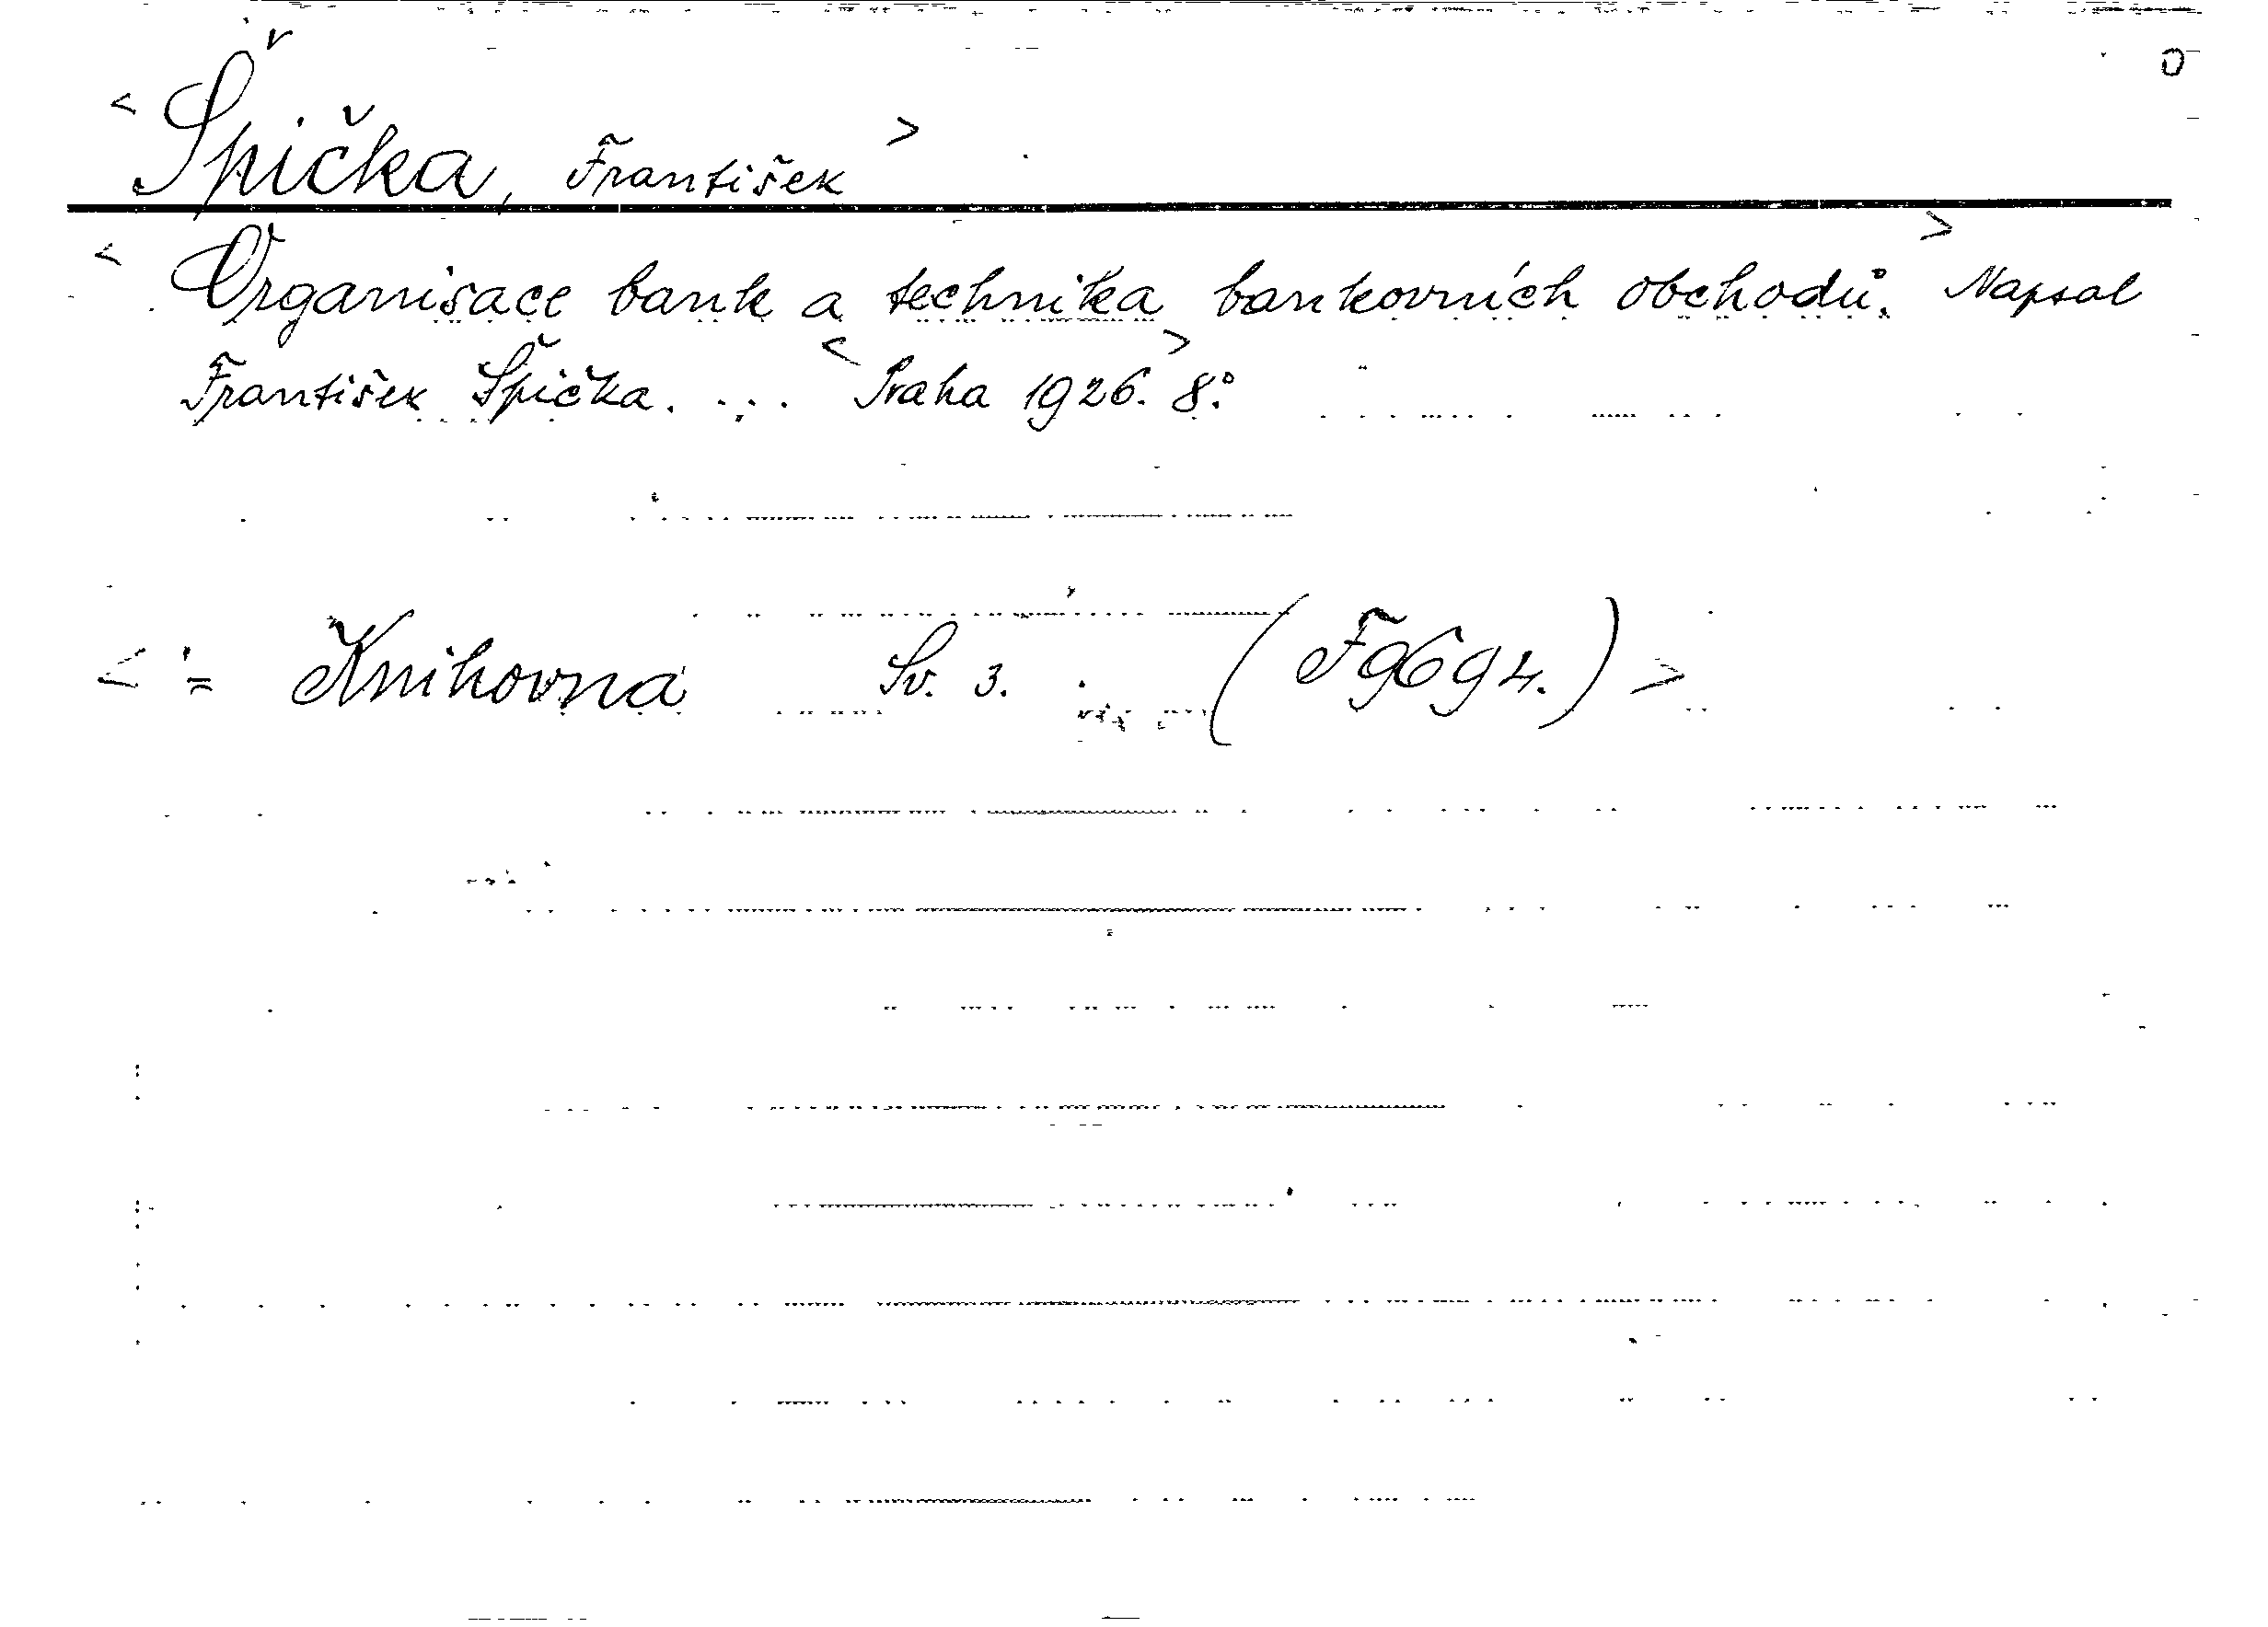 O
< Špička, František >
< Organisace bank a technika bankovních obchodů. > Napsal
František Špička. ... < Praha 1926. > 8º.
< = Knihovna Sv. 3. (F 9694.) >